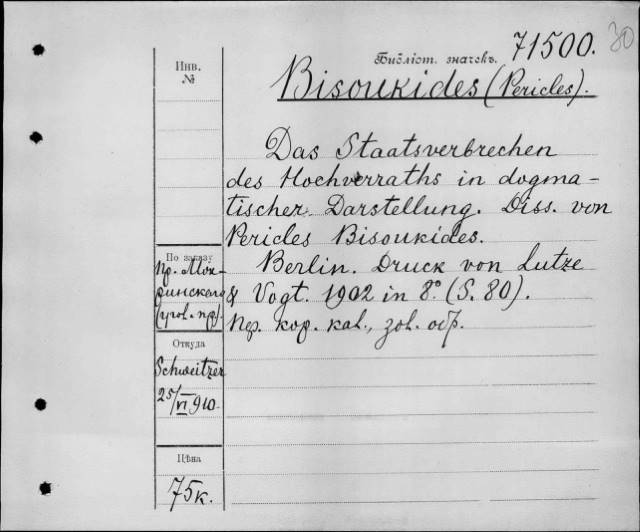 30
Библіот. значекъ. 71500.
Bisoukides (Pericles).
Инв.
№
Das Staatsverbrechen
des Hochverraths in dogma-
tischer Darstellung. Diss. von
Pericles Bisoukides.
Berlin. Druck von Lutze
& Vogt. 1902 in 8° (S. 80).
Пер. кор. каl., зол. обр.
По заказу
Пр.
(угол. пр).
Откуда
Schweitzer
25/VI 910.
Цѣна
75 к.